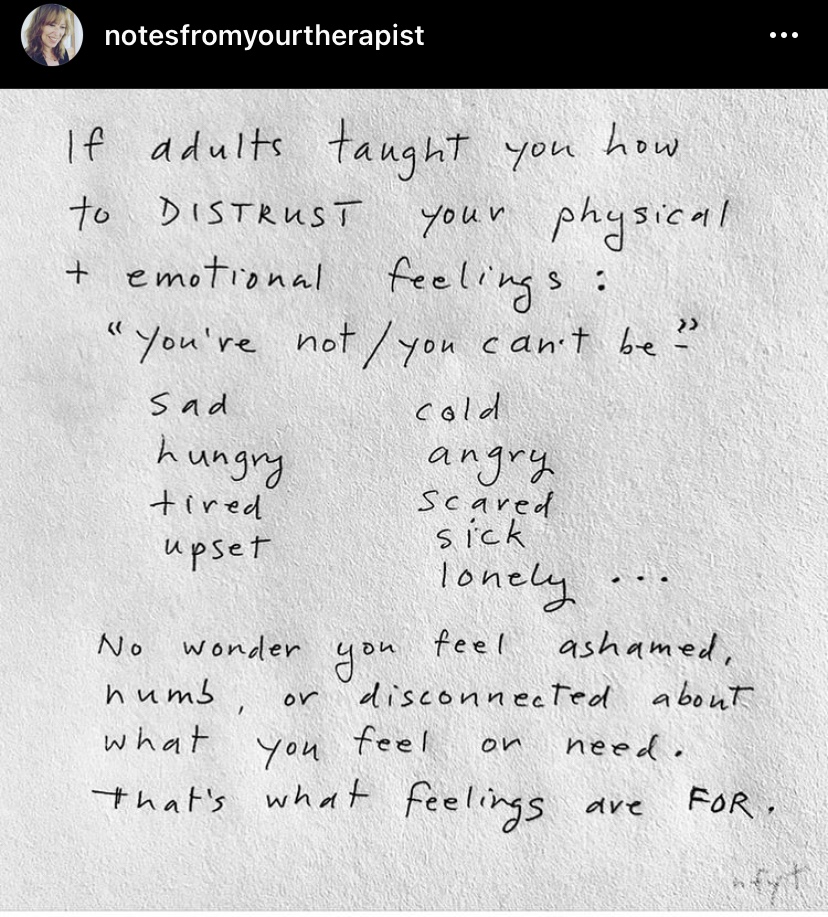 notesfromyourtherapist
If adults taught you how
to DISTRUST your physical
+ emotional feelings :
"You're not/you can't be -"
sad cold
hungry angry
tired scared
upset sick
lonely ...
No wonder you feel ashamed,
numb, or disconnected about
what you feel or need.
That's what feelings are FOR.
nfyt